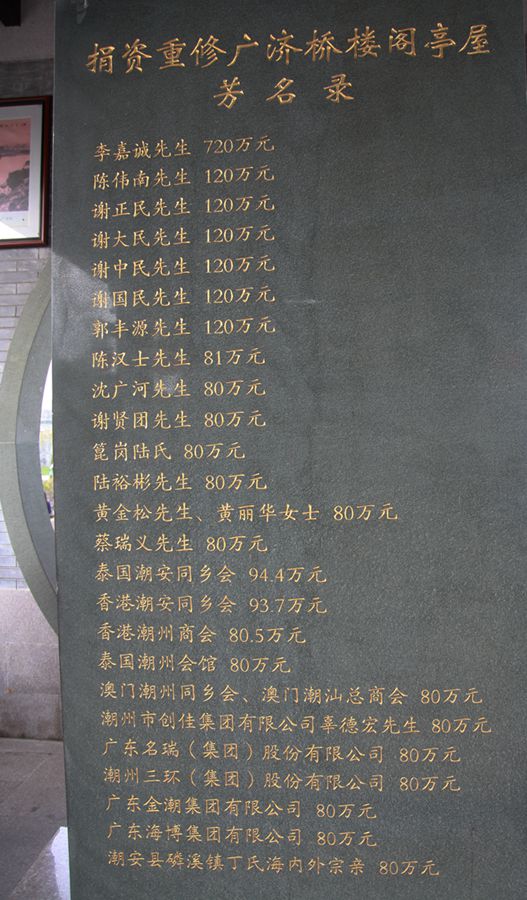 捐资重修广济桥楼阁亭屋
芳名录
李嘉诚先生 720万元
陈伟南先生 120万元
谢正民先生 120万元
谢大民先生 120万元
谢中民先生 120万元
谢国民先生 120万元
郭丰源先生 120万元
陈汉士先生 81万元
沈广河先生 80万元
谢贤团先生 80万元
篦岗陆氏 80万元
陆裕彬先生 80万元
黄金松先生、黄丽华女士 80万元
蔡瑞义先生 80万元
泰国潮安同乡会 94.4万元
香港潮安同乡会 93.7万元
香港潮州商会 80.5万元
泰国潮州会馆 80万元
澳门潮州同乡会、澳门潮汕总商会 80万元
潮州市创佳集团有限公司辜德宏先生 80万元
广东名瑞（集团）股份有限公司 80万元
潮州三环（集团）股份有限公司 80万元
广东金潮集团有限公司 80万元
广东海博集团有限公司 80万元
潮安县磷溪镇丁氏海内外宗亲 80万元